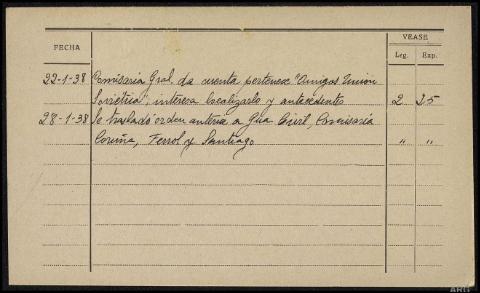 FECHA VEASE
Leg. Exp.
22-1-38 Comisaria Gral. da cuenta pertenece "Amigos Unión
Sovietica", interesa localizarlo y antecedentes 2 25
28-1-38 Se traslado orden anterior a Gua Civil, Comisaría
Coruña, Ferrol y Santiago " "